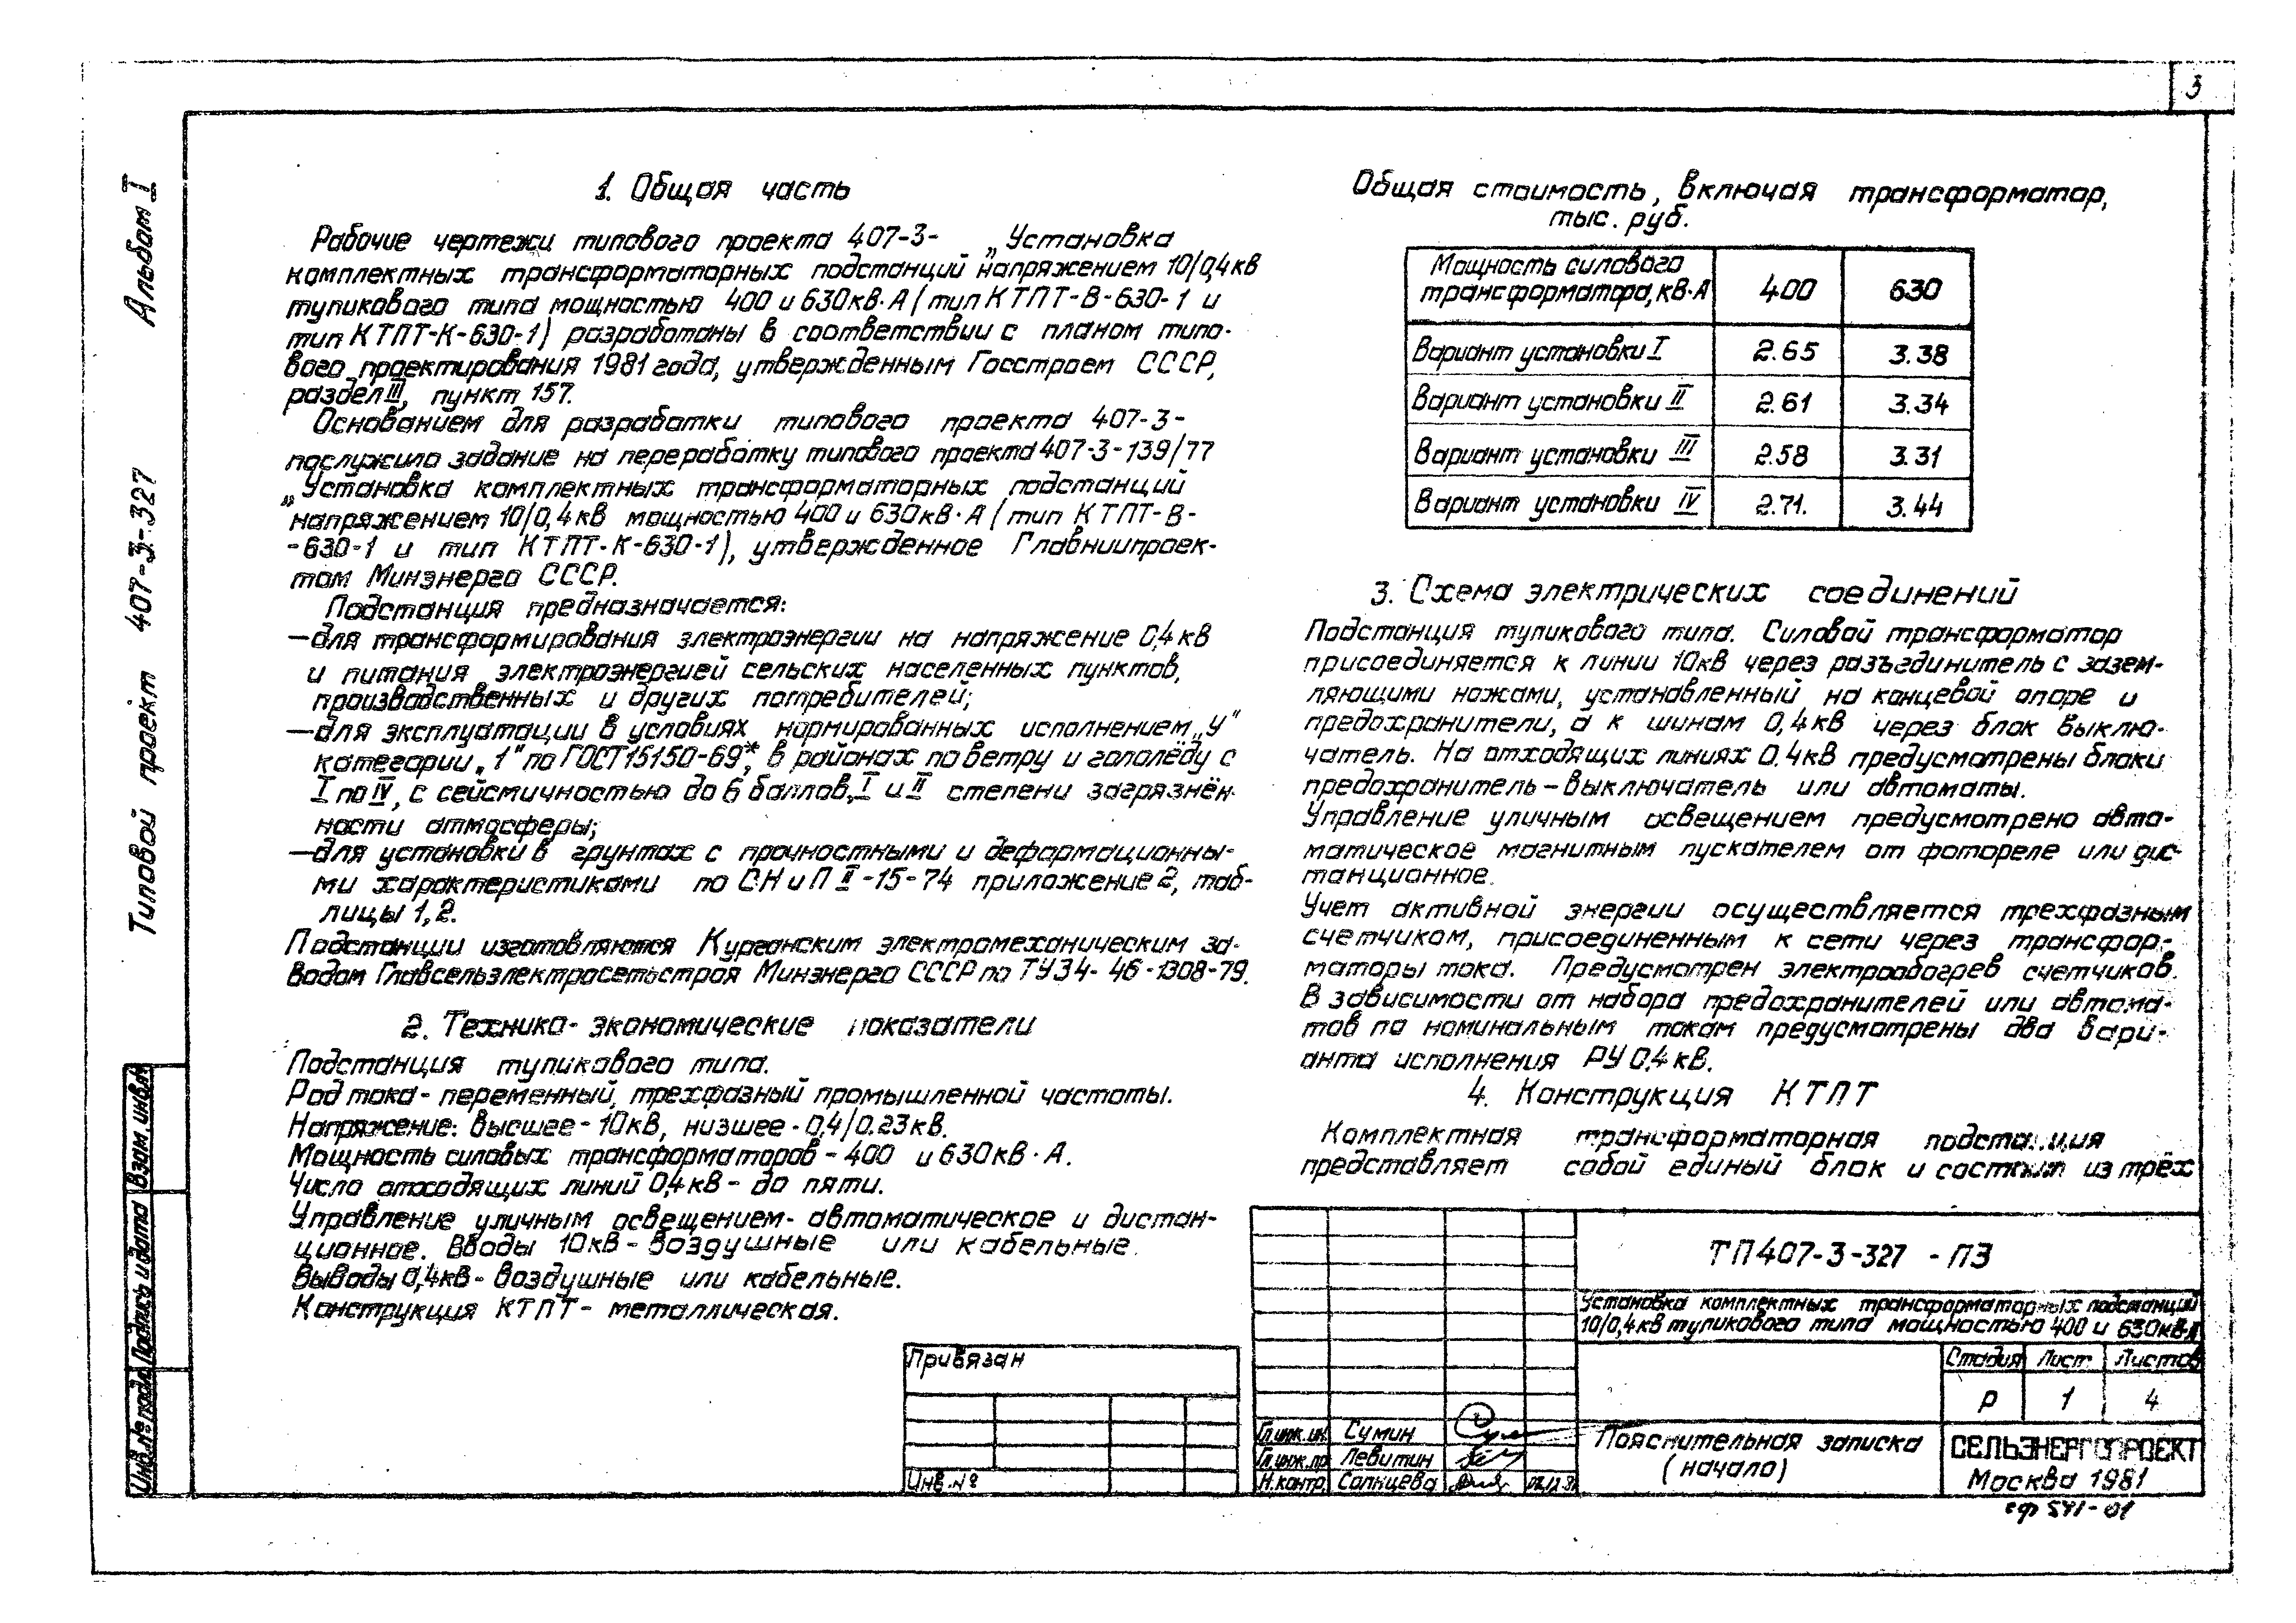 3
Альбом I
Типовой проект 407-3-327
1. Общая часть
Рабочие чертежи типового проекта 407-3- „Установка
комплектных трансформаторных подстанций напряжением 10/0,4кв
тупикового типа мощностью 400 и 630кВ·А (тип КТПТ-В-630-1 и
тип КТПТ-К-630-1) разработаны в соответствии с планом типо-
вого проектирования 1981 года, утвержденным Госстроем СССР,
раздел III, пункт 157.
Основанием для разработки типового проекта 407-3-
послужило задание на переработку типового проекта 407-3-139/77
„Установка комплектных трансформаторных подстанций
напряжением 10/0,4кв мощностью 400 и 630кВ·А (тип КТПТ-В-
-630-1 и тип КТПТ-К-630-1), утвержденное Главниипроек-
том Минэнерго СССР.
Подстанция предназначается:
—для трансформирования электроэнергии на напряжение 0,4кВ
и питания электроэнергией сельских населенных пунктов,
производственных и других потребителей;
—для эксплуатации в условиях нормированных исполнением „У"
категории „1" по ГОСТ15150-69*, в районах по ветру и гололёду с
I по IV, с сейсмичностью до 6 баллов, I и II степени загрязнён-
ности атмосферы;
—для установки в грунтах с прочностными и деформационны-
ми характеристиками по СНиП II-15-74 приложение 2, таб-
лицы 1,2.
Подстанции изготовляются Курганским электромеханическим за-
водом Главсельэлектросетьстроя Минэнерго СССР по ТУ34-46-1308-79.
2. Технико-экономические показатели
Подстанция тупикового типа.
Род тока - переменный, трехфазный промышленной частоты.
Напряжение: высшее - 10кВ, низшее - 0,4/0.23кВ.
Мощность силовых трансформаторов - 400 и 630кВ·А.
Число отходящих линий 0,4кВ - до пяти.
Управление уличным освещением - автоматическое и дистан-
ционное. Вводы 10кВ - воздушные или кабельные.
Выводы 0,4кВ - воздушные или кабельные.
Конструкция КТПТ - металлическая.
Общая стоимость, включая трансформатор,
тыс. руб.
Мощность силового трансформатора, кВ·А 400 630
Вариант установки I 2.65 3.38
Вариант установки II 2.61 3.34
Вариант установки III 2.58 3.31
Вариант установки IV 2.71. 3.44
3. Схема электрических соединений
Подстанция тупикового типа. Силовой трансформатор
присоединяется к линии 10кВ через разъединитель с зазем-
ляющими ножами, установленный на концевой опоре и
предохранители, а к шинам 0,4кВ через блок выклю-
чатель. На отходящих линиях 0.4кВ предусмотрены блоки
предохранитель – выключатель или автоматы.
Управление уличным освещением предусмотрено авто-
матическое магнитным пускателем от фотореле или дис-
танционное.
Учет активной энергии осуществляется трехфазным
счетчиком, присоединенным к сети через трансфор-
маторы тока. Предусмотрен электрообогрев счетчиков.
В зависимости от набора предохранителей или автома-
тов по номинальным токам предусмотрены два вари-
анта исполнения РУ 0,4кВ.
4. Конструкция КТПТ
Комплектная трансформаторная подстанция
представляет собой единый блок и состоит из трёх
Взам. инв.№
Подпись и дата
Инв.№ подл.
Привязан
Инв.№
ТП407-3-327 - ПЗ
Установка комплектных трансформаторных подстанций
10/0,4кв тупикового типа мощностью 400 и 630кВ·А
Стадия Лист Листов
Р 1 4
Гл.инж.ин. Сумин
Гл.инж.пр. Левитин
Н.контр. Солнцева
Пояснительная записка
(начало)
СЕЛЬЭНЕРГОПРОЕКТ
Москва 1981
сф 541-01